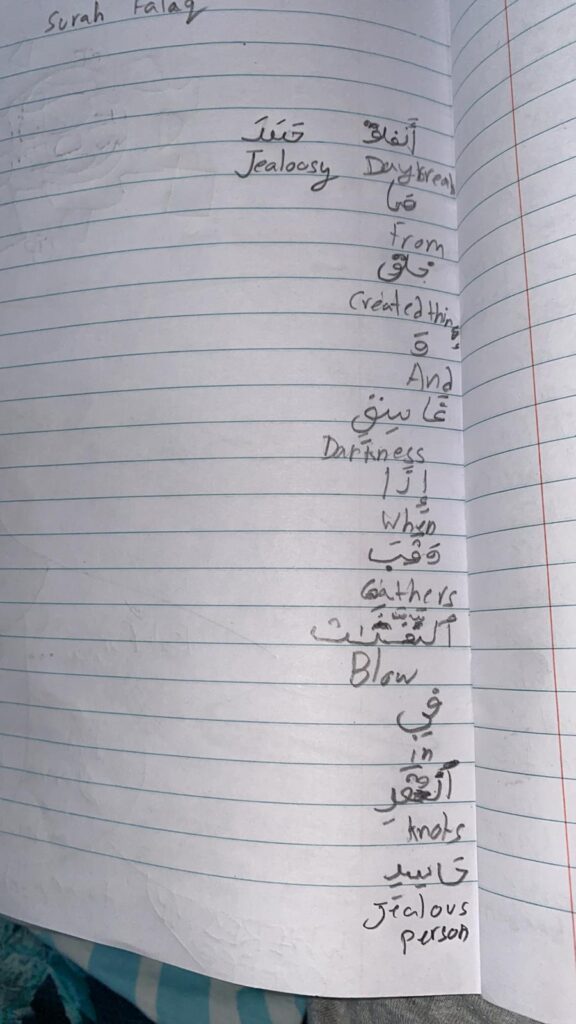 Surah Falaq
حَسَدَ أَلفَلَق
Jealousy Daybreak
مَا
From
خَلَق
Created things
وَ
And
غَاسِقٍ
Darkness
إِذَا
When
وَقَبَ
Gathers
Blow
فِي
in
knots
حَاسِدٍ
Jealous
person